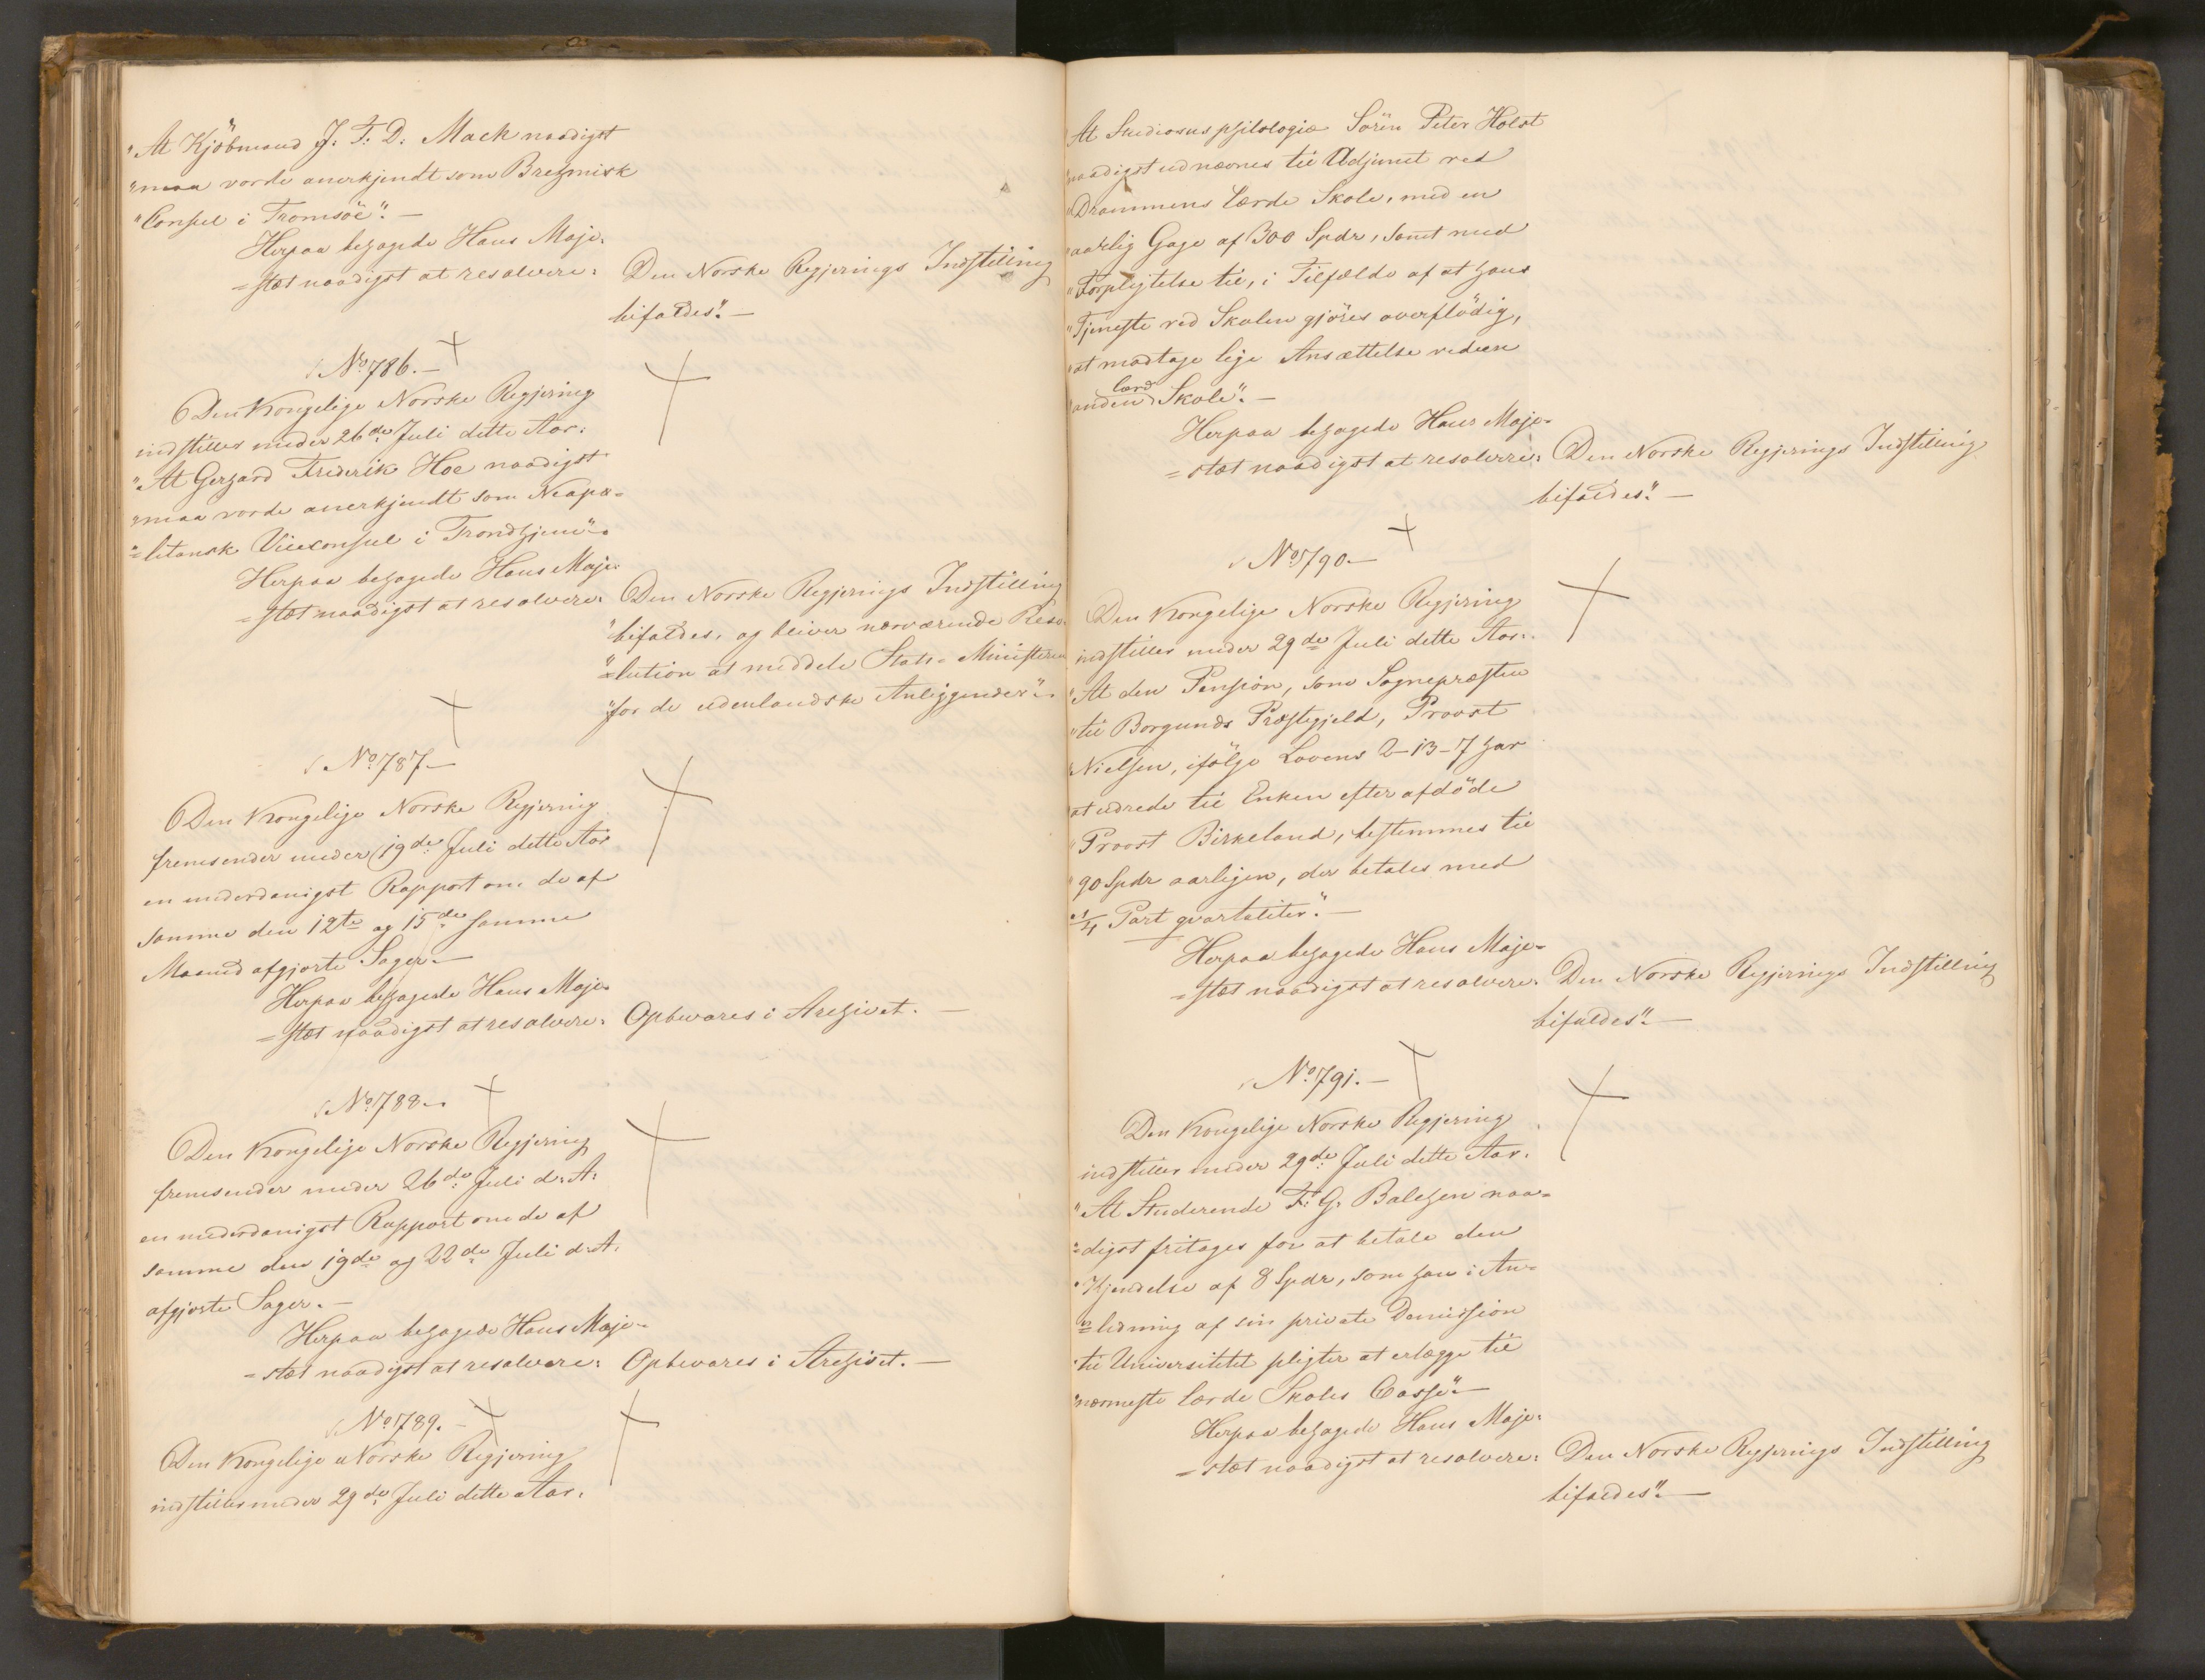 "At Kjöbmand J. F. D. Mack naadigst
"maa vorde anerkjendt som Bremisk
"Consul i Tromsöe". —
Herpaa behagede Hans Maje-
=stæt naadigst at resolvere: Den Norske Regjerings Indstilling
bifaldes". —
No 786. —
Den Kongelige Norske Regjering
indstiller under 26de Juli dette Aar:
"At Gerhard Frederik Hoe naadigst
"maa vorde anerkjendt som Neapo-
"=litansk Viceconsul i Trondhjem".
Herpaa behagede Hans Maje-
=stæt naadigst at resolvere: Den Norske Regjerings Indstilling
"bifaldes, og bliver nærværende Reso-
"=lution at meddele Stats-Ministeren
"for de udenlandske Anliggender".
No 787 —
Den Kongelige Norske Regjering
fremsender under 19de Juli dette Aar
en underdanigst Rapport om de af
samme den 12te og 15de samme
Maaned afgjorte Sager. —
Herpaa behagede Hans Maje-
=stæt naadigst at resolvere: Opbevares i Archivet. —
No 788 —
Den Kongelige Norske Regjering
fremsender under 26de Juli d: A:
en underdanigst Rapport om de af
samme den 19de og 22de Juli d: A.
afgjorte Sager. —
Herpaa behagede Hans Maje-
=stæt naadigst at resolvere: Opbevares i Archivet. —
No 789. —
Den Kongelige Norske Regjering
indstiller under 29de Juli dette Aar:
"At Studiosus philologiæ Sören Peter Holst
"naadigst udnævnes til Adjunct ved
"Drammens lærde Skole, med en
"aarlig Gage af 300 Spdr, samt med
"Forpligtelse til, i Tilfælde af at hans
"Tjeneste ved Skolen gjöres overflödig,
"at modtage lige Ansættelse ved en
"anden lærd Skole". —
Herpaa behagede Hans Maje-
=stæt naadigst at resolvere: Den Norske Regjerings Indstilling
bifaldes". —
No 790 —
Den Kongelige Norske Regjering
indstiller under 29de Juli dette Aar:
"At den Pension, som Sognepræsten
"til Borgunds Præstegjeld, Provst
"Nielsen, ifölge Lovens 2-13-7 har
"at udrede til Enken efter afdöde
"Provst Birkeland, bestemmes til
"90 Spdr aarligen, der betales med
"1/4 Part qvartaliter". —
Herpaa behagede Hans Maje-
=stæt naadigst at resolvere: Den Norske Regjerings Indstilling
bifaldes". —
No 791. —
Den Kongelige Norske Regjering
indstiller under 29de Juli dette Aar:
"At Studerende F. G. Balchen naa-
"=digst fritages for at betale den
"Kjendelse af 8 Spdr, som han i An-
"=ledning af sin private Demission
"til Universitetet pligter at erlægge til
"nærmeste lærde Skoles Casse". —
Herpaa behagede Hans Maje-
=stæt naadigst at resolvere: Den Norske Regjerings Indstilling
bifaldes". —